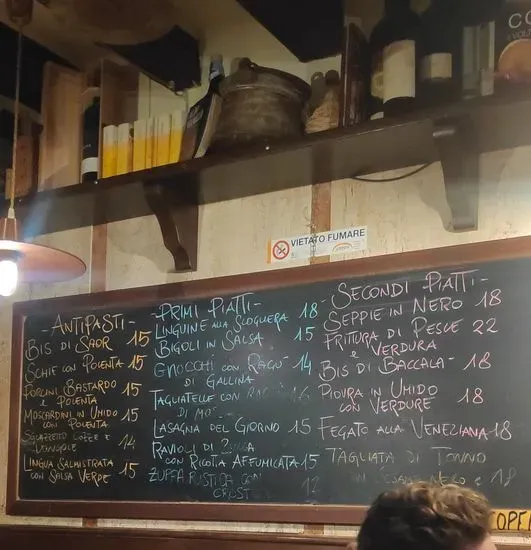 CO
VOLT
VIETATO FUMARE
- ANTIPASTI -
BIS DI SAOR 15
SCHIE CON POLENTA 15
PORCINI BASTARDO 15
E POLENTA
MOSCARDINI IN UMIDO 15
CON POLENTA
SGUAZZETTO COZZE E
VONGOLE 14
LINGUA SALMISTRATA 15
CON SALSA VERDE
- PRIMI PIATTI -
LINGUINE ALLA SCOGLIERA 18
BIGOLI IN SALSA 15
GNOCCHI CON RAGÙ 14
DI GALLINA
TAGLIATELLE CON
DI
LASAGNA DEL GIORNO 15
RAVIOLI DI ZUCCA
CON RICOTTA AFFUMICATA 15
ZUPPA RUSTICA CON
CROST 12
- SECONDI PIATTI -
SEPPIE IN NERO 18
FRITURA DI PESCE 22
E VERDURA
BIS DI BACCALA 18
PIOVRA IN UMIDO 18
CON VERDURE
FEGATO ALLA VENEZIANA 18
TAGLIATA DI TONNO
NERO 18